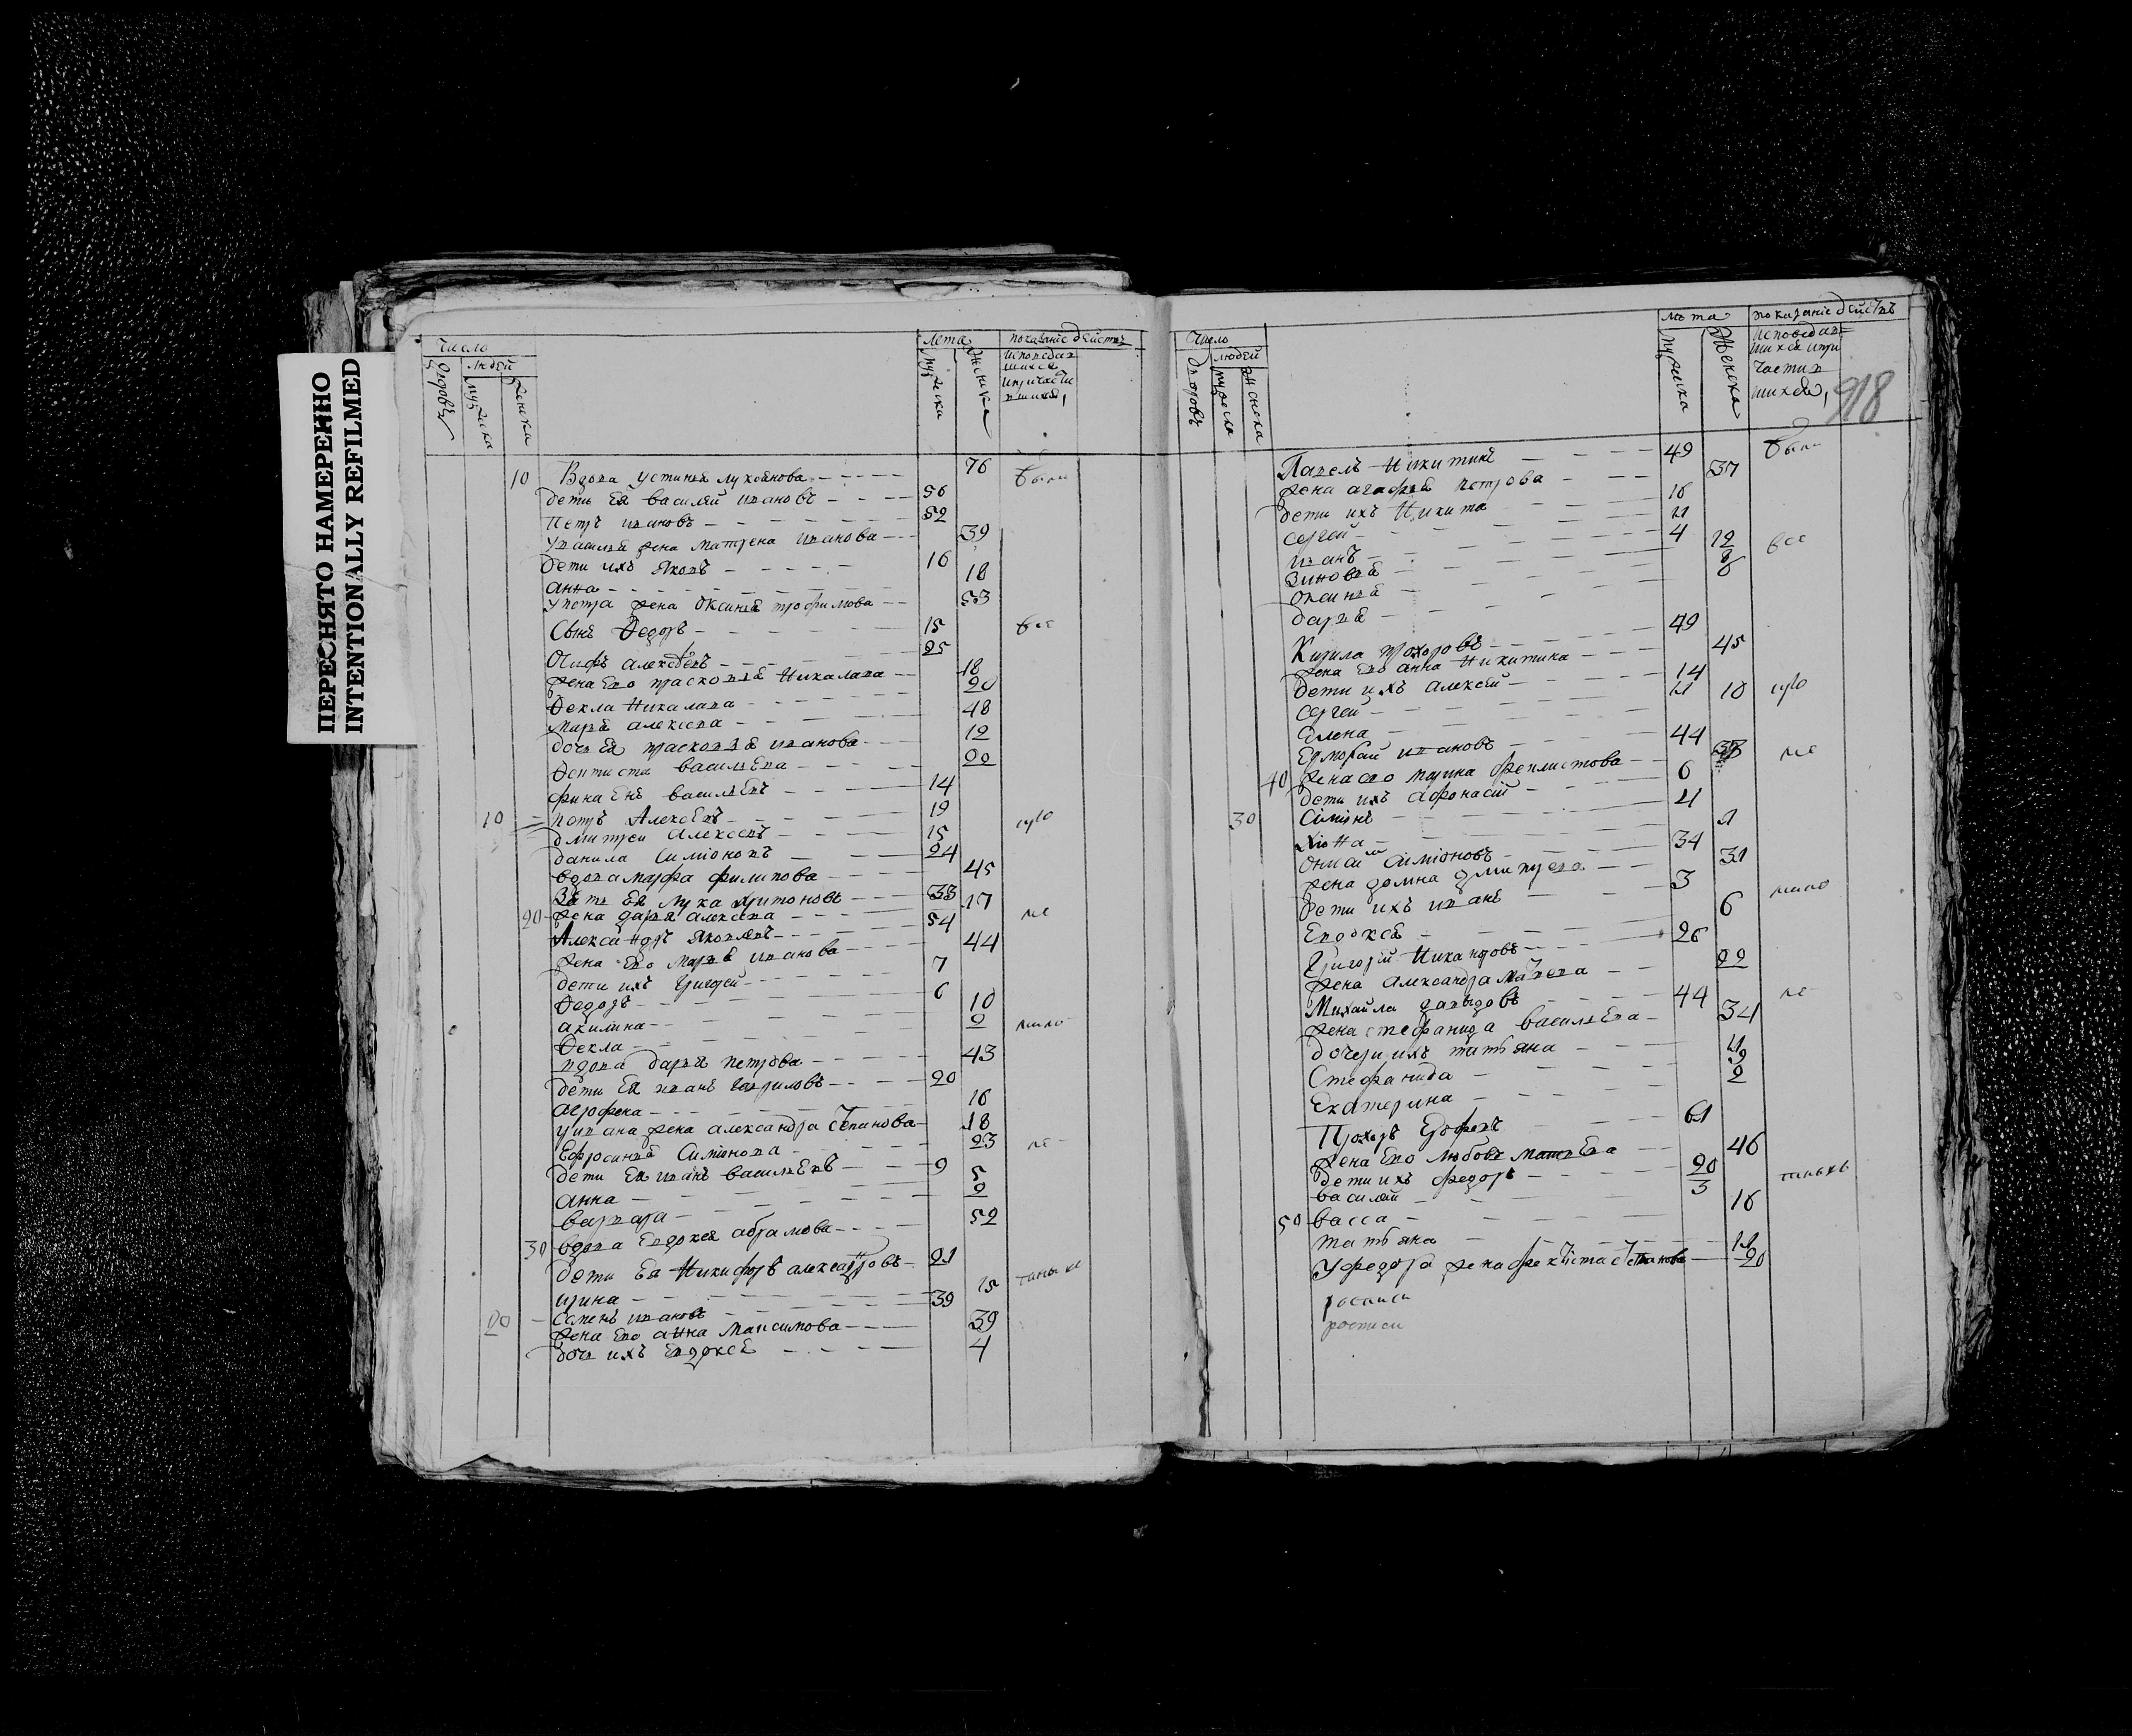 ПЕРЕСНЯТО НАМЕРЕННО
INTENTIONALLY REFILMED
Число
людей
дворовъ
мужеска
женска
Лета
мужеска
женска
показание действъ
исповедав
шихся
и причасти
вшихся,
10 Вдова устинья лукоянова 76 были
дети Ея василей ивановъ 56
Петръ ивановъ 52
У василья жена матрена иванова 39
дети ихъ яковъ 16
анна 18
у петра жена оксинья трофимова 53
Сынъ Федоръ 15 все
алексеевъ 25
жена Ево прасковья Никалаева 18
Фекла Никалаева 20
марья алексеева 48
дочь Ея прасковья иванова 12
василЕва 22
василЕвъ 14
10 Петръ АлексЕевъ 19
дмитреи Алексеевъ 15
данила Симионовъ 24
вдова марфа филипова 45
Зять Ея лука харитоновъ 33
20 жена дарья алексеева 17 ме
Александръ яковлевъ 54
жена Ево марья иванова 44
дети ихъ Григорей 7
Федоръ 6
акилина 10
Фекла 2
вдова дарья петрова 43
дети Ея иванъ гавриловъ 20
16
у ивана жена александра степанова 18
Ефросинья Симионова 23
дети Ея иванъ василЕвъ 9
анна 5
варвара 2
30 вдова Евдокея абрамова 52
дети Ея Никифоръ александровъ 21
ирина 15
20 Семенъ ивановъ 39
жена Ево анна Максимова 39
дочь ихъ Евдокеё 4
Число
людей
дворовъ
мужеска
женска
лета
мужеска
женска
показание действъ
исповедав
шихся и при
частив
шихся,
918
Павелъ Никитинъ 49 были
жена агафья петрова 37
дети ихъ Никита 16
сергей 11
иванъ 4
Зиновея 12 все
оксинья 8
дарья 6
Кирила прохоровъ 49
жена Ево анна Никитина 45
дети ихъ Алексей 14
сергей 11
елена 10
ивановъ 44
40 жена ево марина феклистова ме
дети ихъ афонасий 6
30 Симионъ 4
Симионовъ 34
жена домна дмитреева 31
дети ихъ иванъ 3
Евдокея 6
Григорей Никандровъ 26
жена Александра матвеева 22
Михайла давыдовъ 44
жена стефанида василЕва 34
дочери ихъ татьяна 11
Стефанида 9
Екатерина 2
Прохоръ Ерофеевъ 61
жена Ево любовь матвЕва 46
дети ихъ федоръ 20
василей 3
50 васса 16
татьяна 11
У федора жена феклиста степанова 20
росписи
росписи